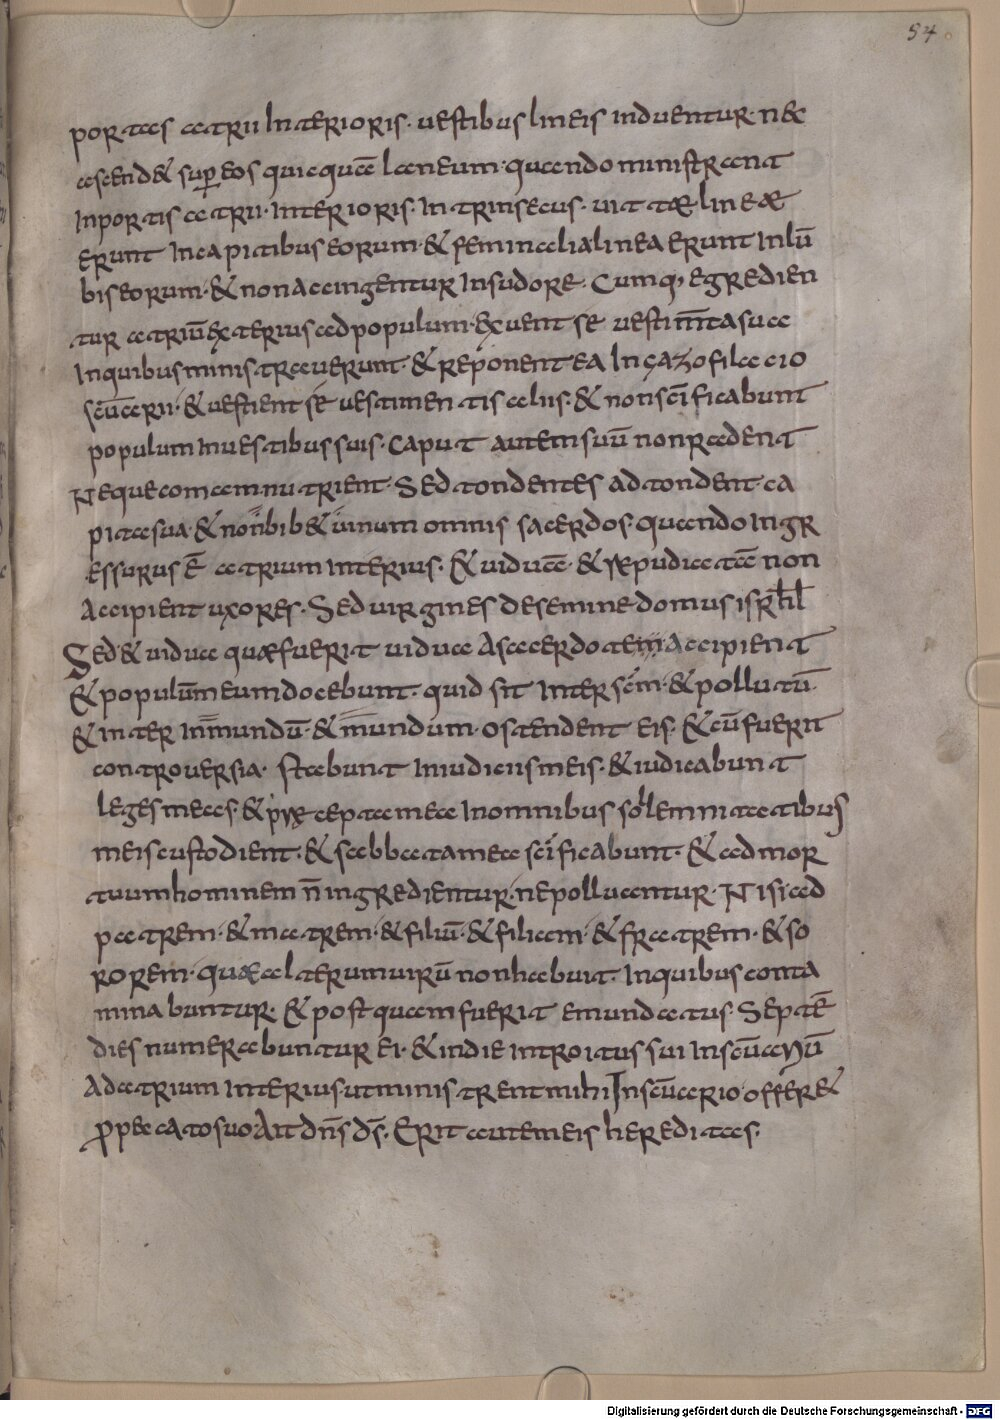 54
portas atrii Interioris. uestibus lineis induentur. nec
ascend& sup eos quicquā laneum. quando ministrant
Inportis atrii. Interioris. Intrinsecus. uittæ lineæ
erunt Incapitibus eorum. & feminalialinea erunt Inlū
bis eorum. & nonaccingentur Insudore. Cumq; egredien
tur atriū exterius adpopulum. exuent se uestim̄tasua
Inquibus ministrauerunt. & reponent ea Ingazofilacio
sc̄uarii. & uestient se uestimentis aliis. & nonsc̄ificabunt
populum Inuestibus suis. Caput autem suū nonradent
Neque comam nutrient. Sed tondentes adtondent ca
pitasua. & non bib& uinum omnis sacerdos. quando Ingr
essurus ē atrium Interius. & uiduā. & repudiatā non
Accipient uxores. Sed uirgines desemine domus isrl̄
Sed & uidua quæ fuerit uidua Asacerdotem accipient
& populūmeum docebunt. quid sit Inter sc̄m. & pollutū
& inter Inmundū. & mundum. ostendent eis. & cū fuerit
controuersia. stabunt Iniudiciis meis. & iudicabunt
leges meas. & præcepta mea Inomnibus solemnitatibus
meis custodient. & sabbata mea sc̄ificabunt. & admor
tuum hominem n̄ ingredientur. nepolluantur. Nisi ad
patrem. & matrem. & filiū. & filiam. & fratrem. & so
rorem. quæ alterum uirū nonhabuit. Inquibus conta
minabuntur. & postquam fuerit emundatus. Septē
dies numerabuntur ei. & indie Introitus sui Insc̄uariū
Adatrium Interius utministrent mihi Insc̄uario. offer&
ꝓpeccatosuo. Ait dn̄s ds̄. Erit autem eis hereditas.
Digitalisierung gefördert durch die Deutsche Forschungsgemeinschaft - DFG